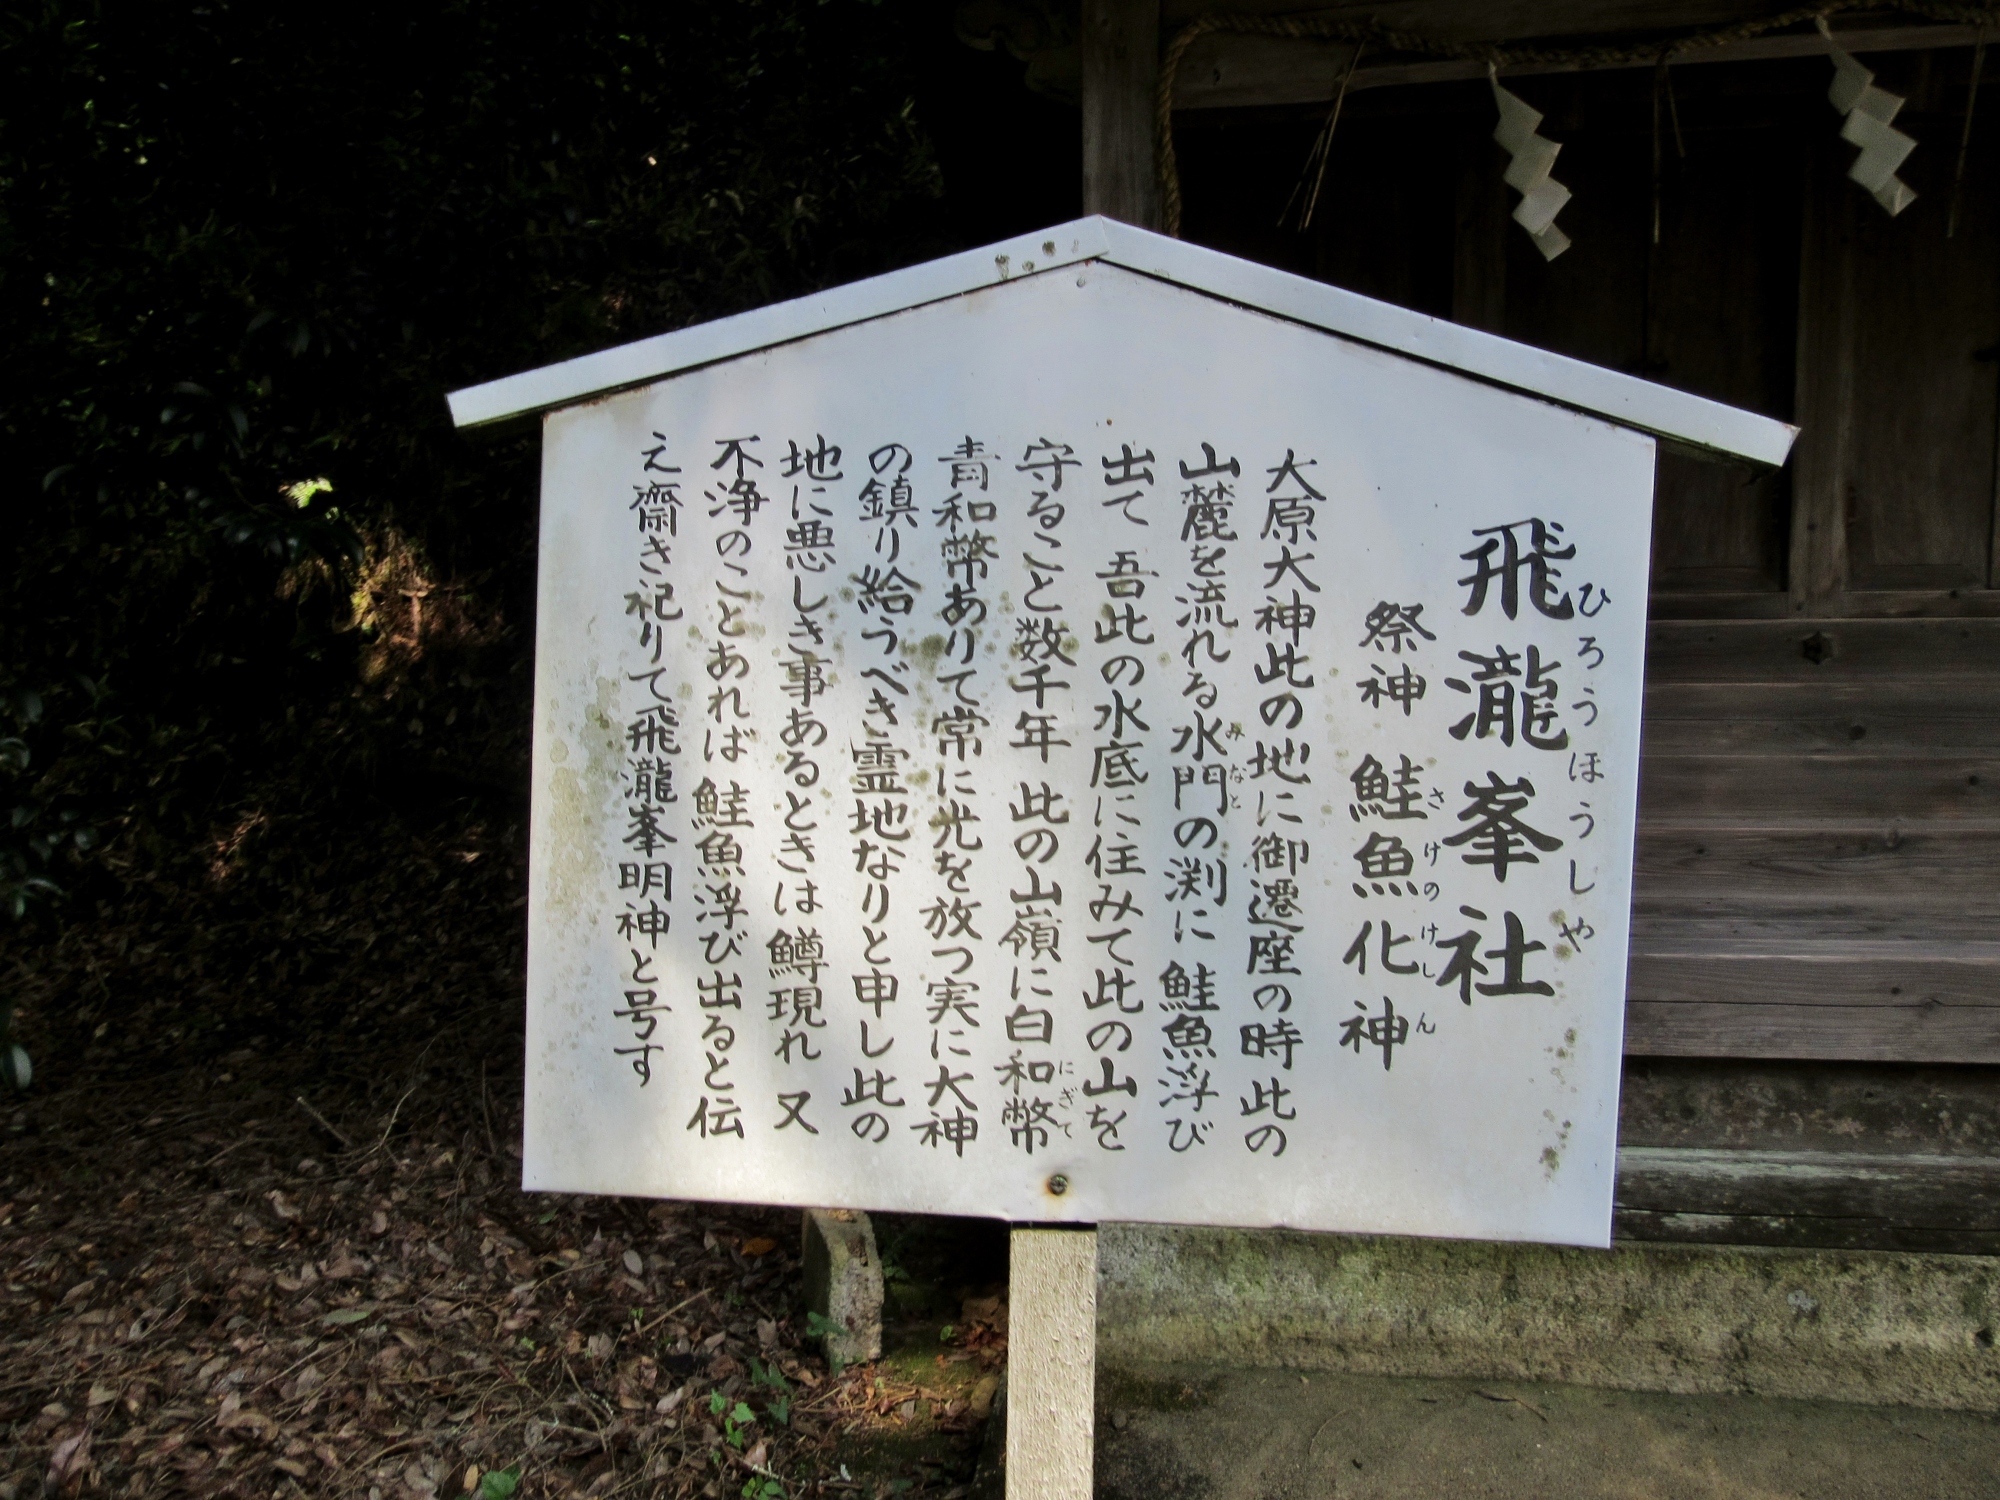 飛瀧峯社
ひろうほうしや
祭神 鮭魚化神
さけのけしん
大原大神此の地に御遷座の時此の
山麓を流れる水門の渕に鮭魚浮び
みなと
出て 吾此の水底に住みて此の山を
守ること数千年 此の山嶺に白和幣
にぎて
青和幣ありて常に光を放つ実に大神
の鎮り給うべき霊地なりと申し此の
地に悪しき事あるときは鱒現れ 又
不浄のことあれば鮭魚浮び出ると伝
え齋き祀りて飛瀧峯明神と号す